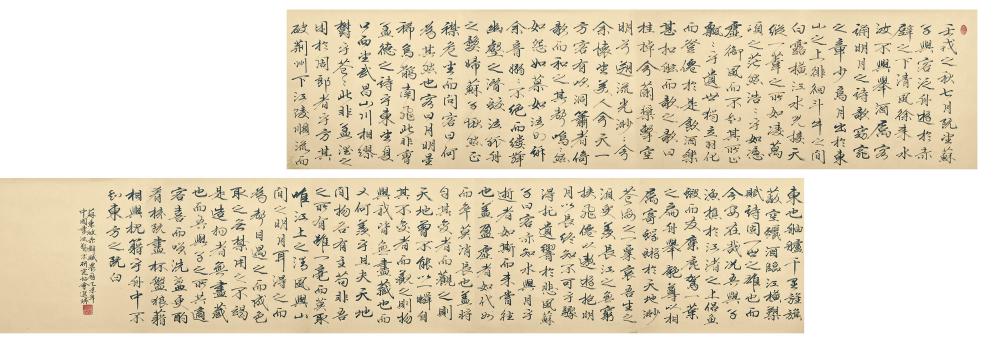 壬戌之秋七月既望蘇
子與客泛舟遊於赤
壁之下清風徐來水
波不興舉酒屬客
誦明月之詩歌窈窕
之章少焉月出於東
山之上徘徊斗牛之間
白露橫江水光接天
縱一葦之所如凌萬
頃之茫然浩浩乎如憑
虛御風而不知其所止
飄飄乎遺世獨立羽化
而登僊於是飲酒樂
甚扣舷而歌之歌曰
桂棹兮蘭槳擊空
明兮溯流光渺渺兮
余懷望美人兮天一
方客有吹洞簫者倚
歌而和之其聲嗚嗚然
如怨如慕如泣如訴
余音嫋嫋不絕如縷舞
幽壑之潛蛟泣孤舟
之嫠婦蘇子愀然正
襟危坐而問客曰何
為其然也客曰月明星
稀烏鵲南飛此非曹
孟德之詩乎東望夏
口西望武昌山川相繆
鬱乎蒼蒼此非孟德之
困於周郎者乎方其
破荊州下江陵順流而
東也舳艫千里旌旗
蔽空釃酒臨江橫槊
賦詩固一世之雄也而
今安在哉況吾與子
漁樵於江渚之上侶魚
蝦而友麋鹿駕一葉
之扁舟舉匏尊以相
屬寄蜉蝣於天地渺
蒼海之一粟哀吾生之
須臾羨長江之無窮
挾飛僊以遨遊抱明
月以長終知不可乎驟
得托遺響於悲風蘇
子曰客亦知夫水與月乎
逝者如斯而未嘗往
也盈虛者如代
而卒莫消長也蓋將
自其變者而觀之則
天地曾不能以一瞬自
其不變者而觀之則物
與我皆無盡藏也而
又何羨乎且夫天地
之間物各有主苟非吾
之所有雖一毫而莫取
唯江上之清風與山
間之明月耳得之而
為聲目遇之而成色
取之無禁用之不竭
是造物者無盡藏
也而吾與子之所共適
客喜而笑洗盞更酌
肴核既盡杯盤狼藉
相與枕藉乎舟中不
知東方之既白
蘇東坡赤壁賦
中國書法